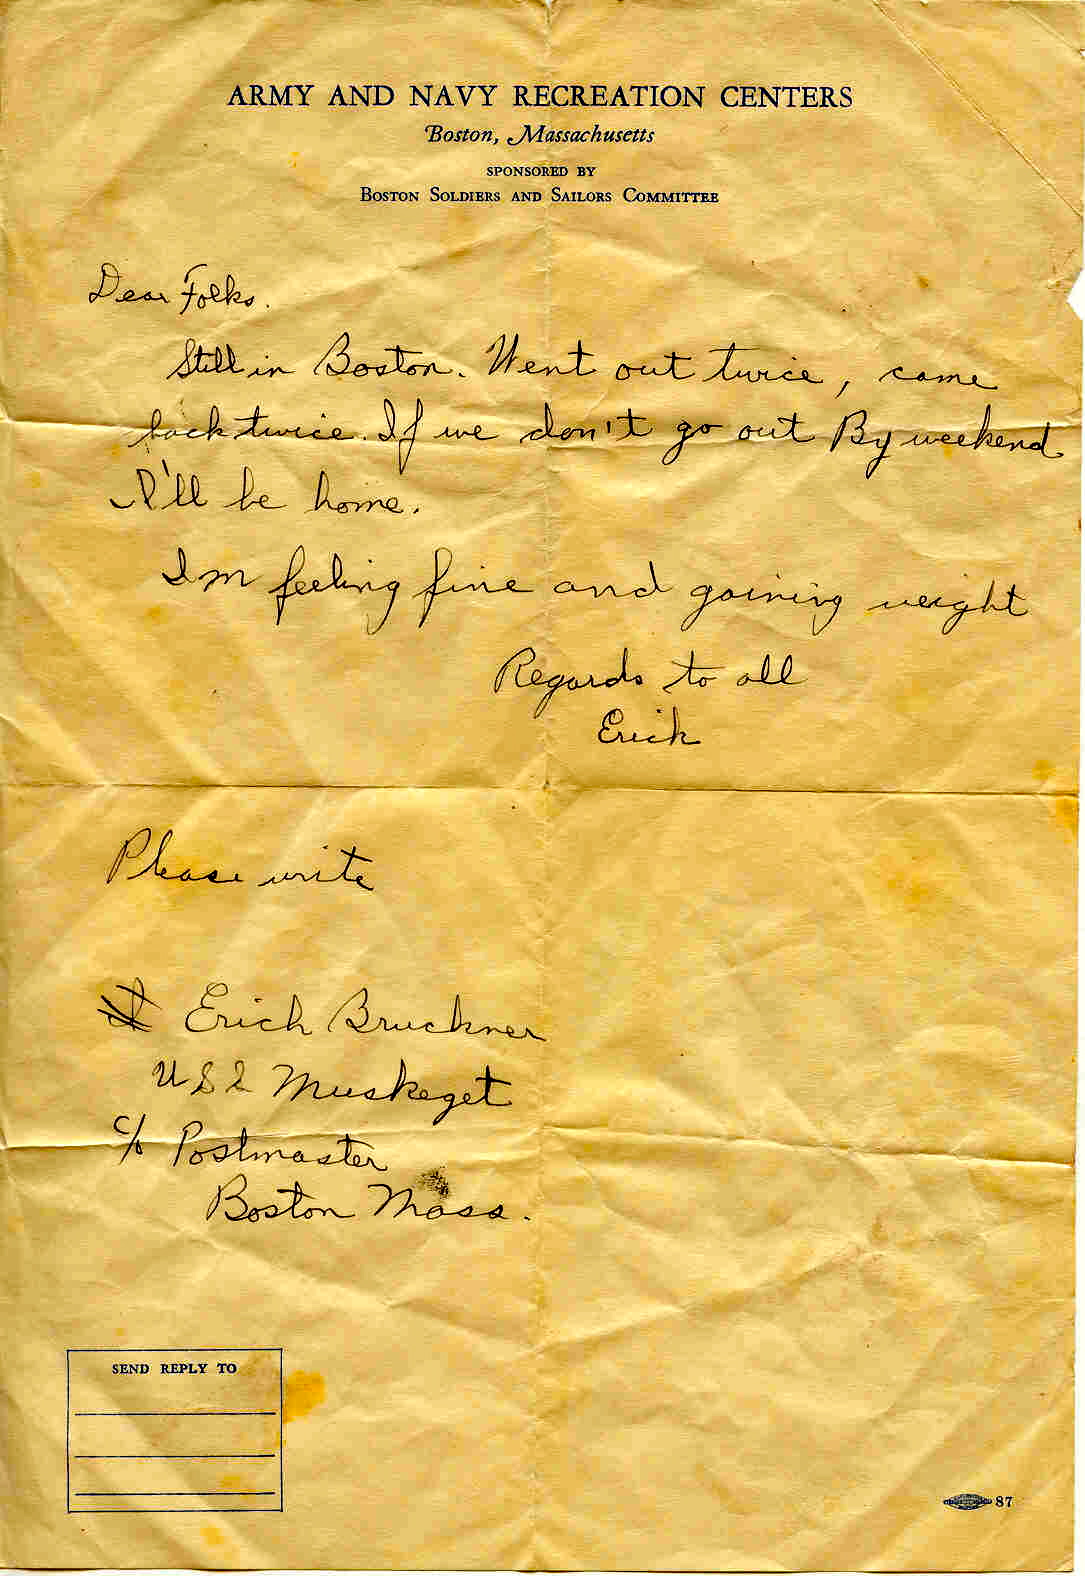 ARMY AND NAVY RECREATION CENTERS
Boston, Massachusetts
SPONSORED BY
BOSTON SOLDIERS AND SAILORS COMMITTEE
Dear Folks.
Still in Boston. Went out twice, came
back twice. If we don't go out By weekend
I'll be home.
Im feeling fine and gaining weight
Regards to all
Erich
Please write
Erich Bruckner
USS Muskeget
c/o Postmaster
Boston Mass.
SEND REPLY TO
87